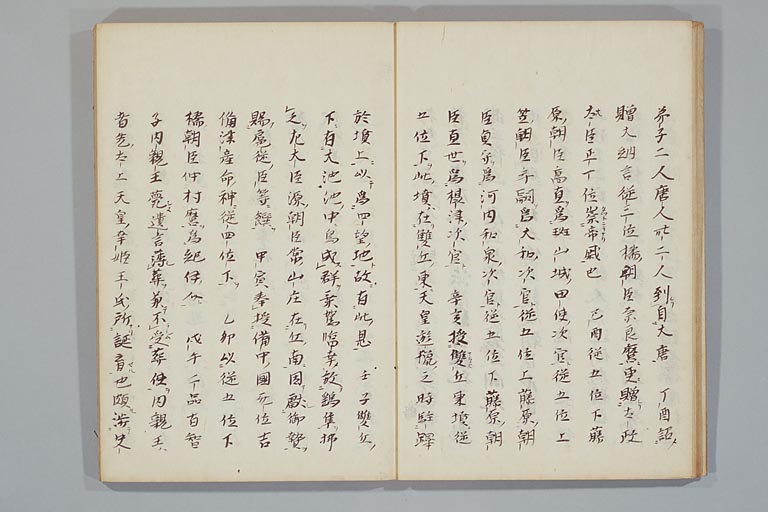 弟子二人唐人廿二人到自大唐 丁酉詔
贈大納言従三位橘朝臣奈良麿更贈太政
大臣正一位崇帝戚也 己酉従五位下藤
原朝臣高直為班山城田使次官従五位上
笠朝臣予嗣為大和次官従五位上藤原朝
臣貞守為河内和泉次官従五位下藤原朝
臣直世為摂津次官 辛亥授雙丘東墳従
五位下此墳在雙丘東天皇遊猟之時駐蹕
於墳上以為四望地故有此恩 壬子雙丘
下有大池池中鳥成群乗駕臨幸放鷂隼拂
之左大臣源朝臣常山庄在丘南因獻御贄
賜扈従臣等饌 甲寅奉授備中國无位吉
備津彦命神従四位下 乙卯以従五位下
橘朝臣仲村麿為紀伊介 戊午二品有智
子内親王薨遺言薄葬兼不受葬使内親王
者先太上天皇幸姫王氏所誕育也頗渉史